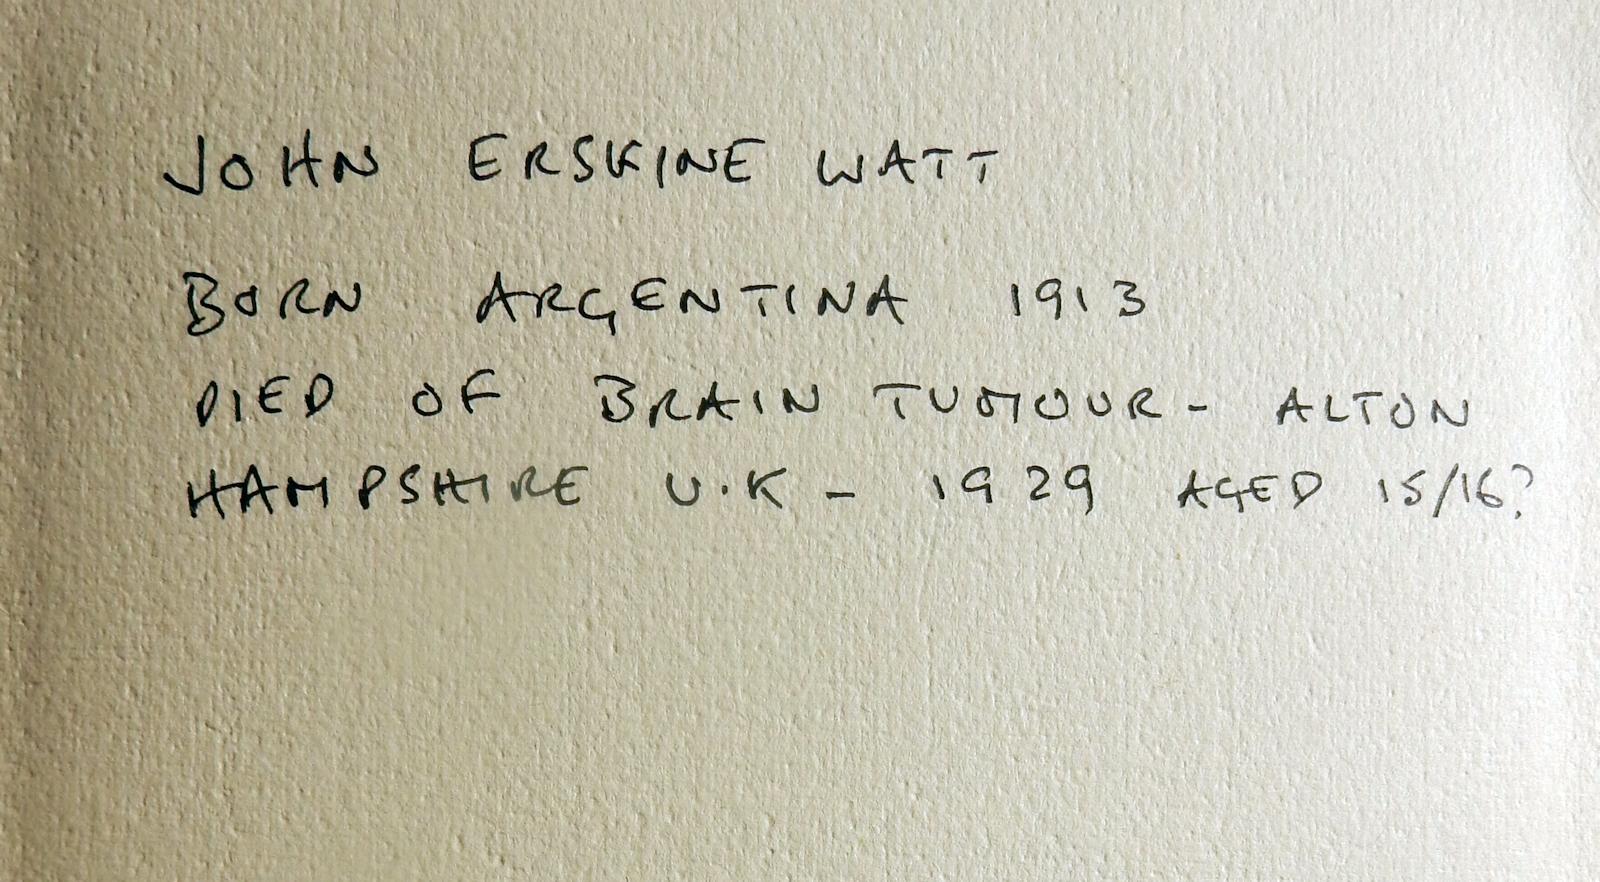 JOHN ERSKINE WATT
BORN ARGENTINA 1913
DIED OF BRAIN TUMOUR - ALTON
HAMPSHIRE U.K - 1929 AGED 15/16?